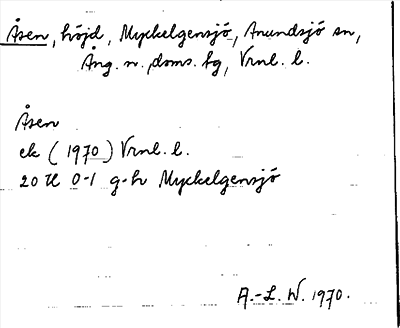 Åsen, höjd, Myckelgensjö, Anundsjö sn,
Ång. n. doms. hg, Vrnl. l.
Åsen
ek (1970) Vrnl. l.
20 H 0-1 g-h Myckelgensjö
A.-L. W. 1970.